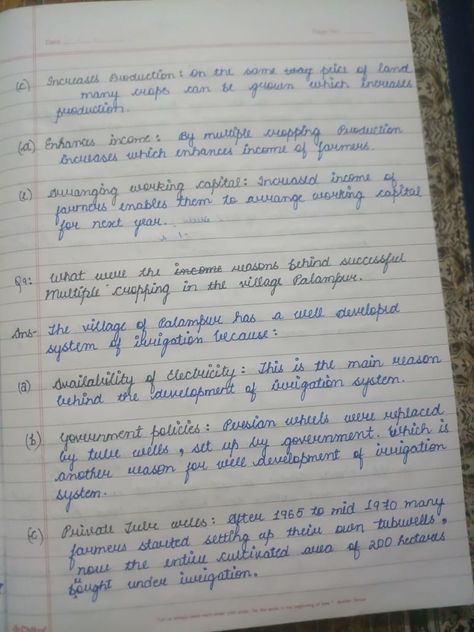 Date
Page No.
(c) Increases Production : On the same price of land
many crops can be grown which increases
production.
(d) Enhances income : By multiple cropping Production
increases which enhances income of farmers.
(e) Arranging working capital : Increased income of
farmers enables them to arrange working capital
for next year.
Q9: What were the income reasons behind successful
Multiple cropping in the village Palampur.
Ans- The village of Palampur has a well developed
system of irrigation because :
(a) Availability of Electricity : This is the main reason
behind the development of irrigation system.
(b) Government policies : Persian wheels were replaced
by tube wells , set up by government. Which is
another reason for well development of irrigation
system.
(c) Private Tube wells : After 1965 to mid 1970 many
farmers started setting up their own tubewells ,
now the entire cultivated area of 200 hectares
bought under irrigation.